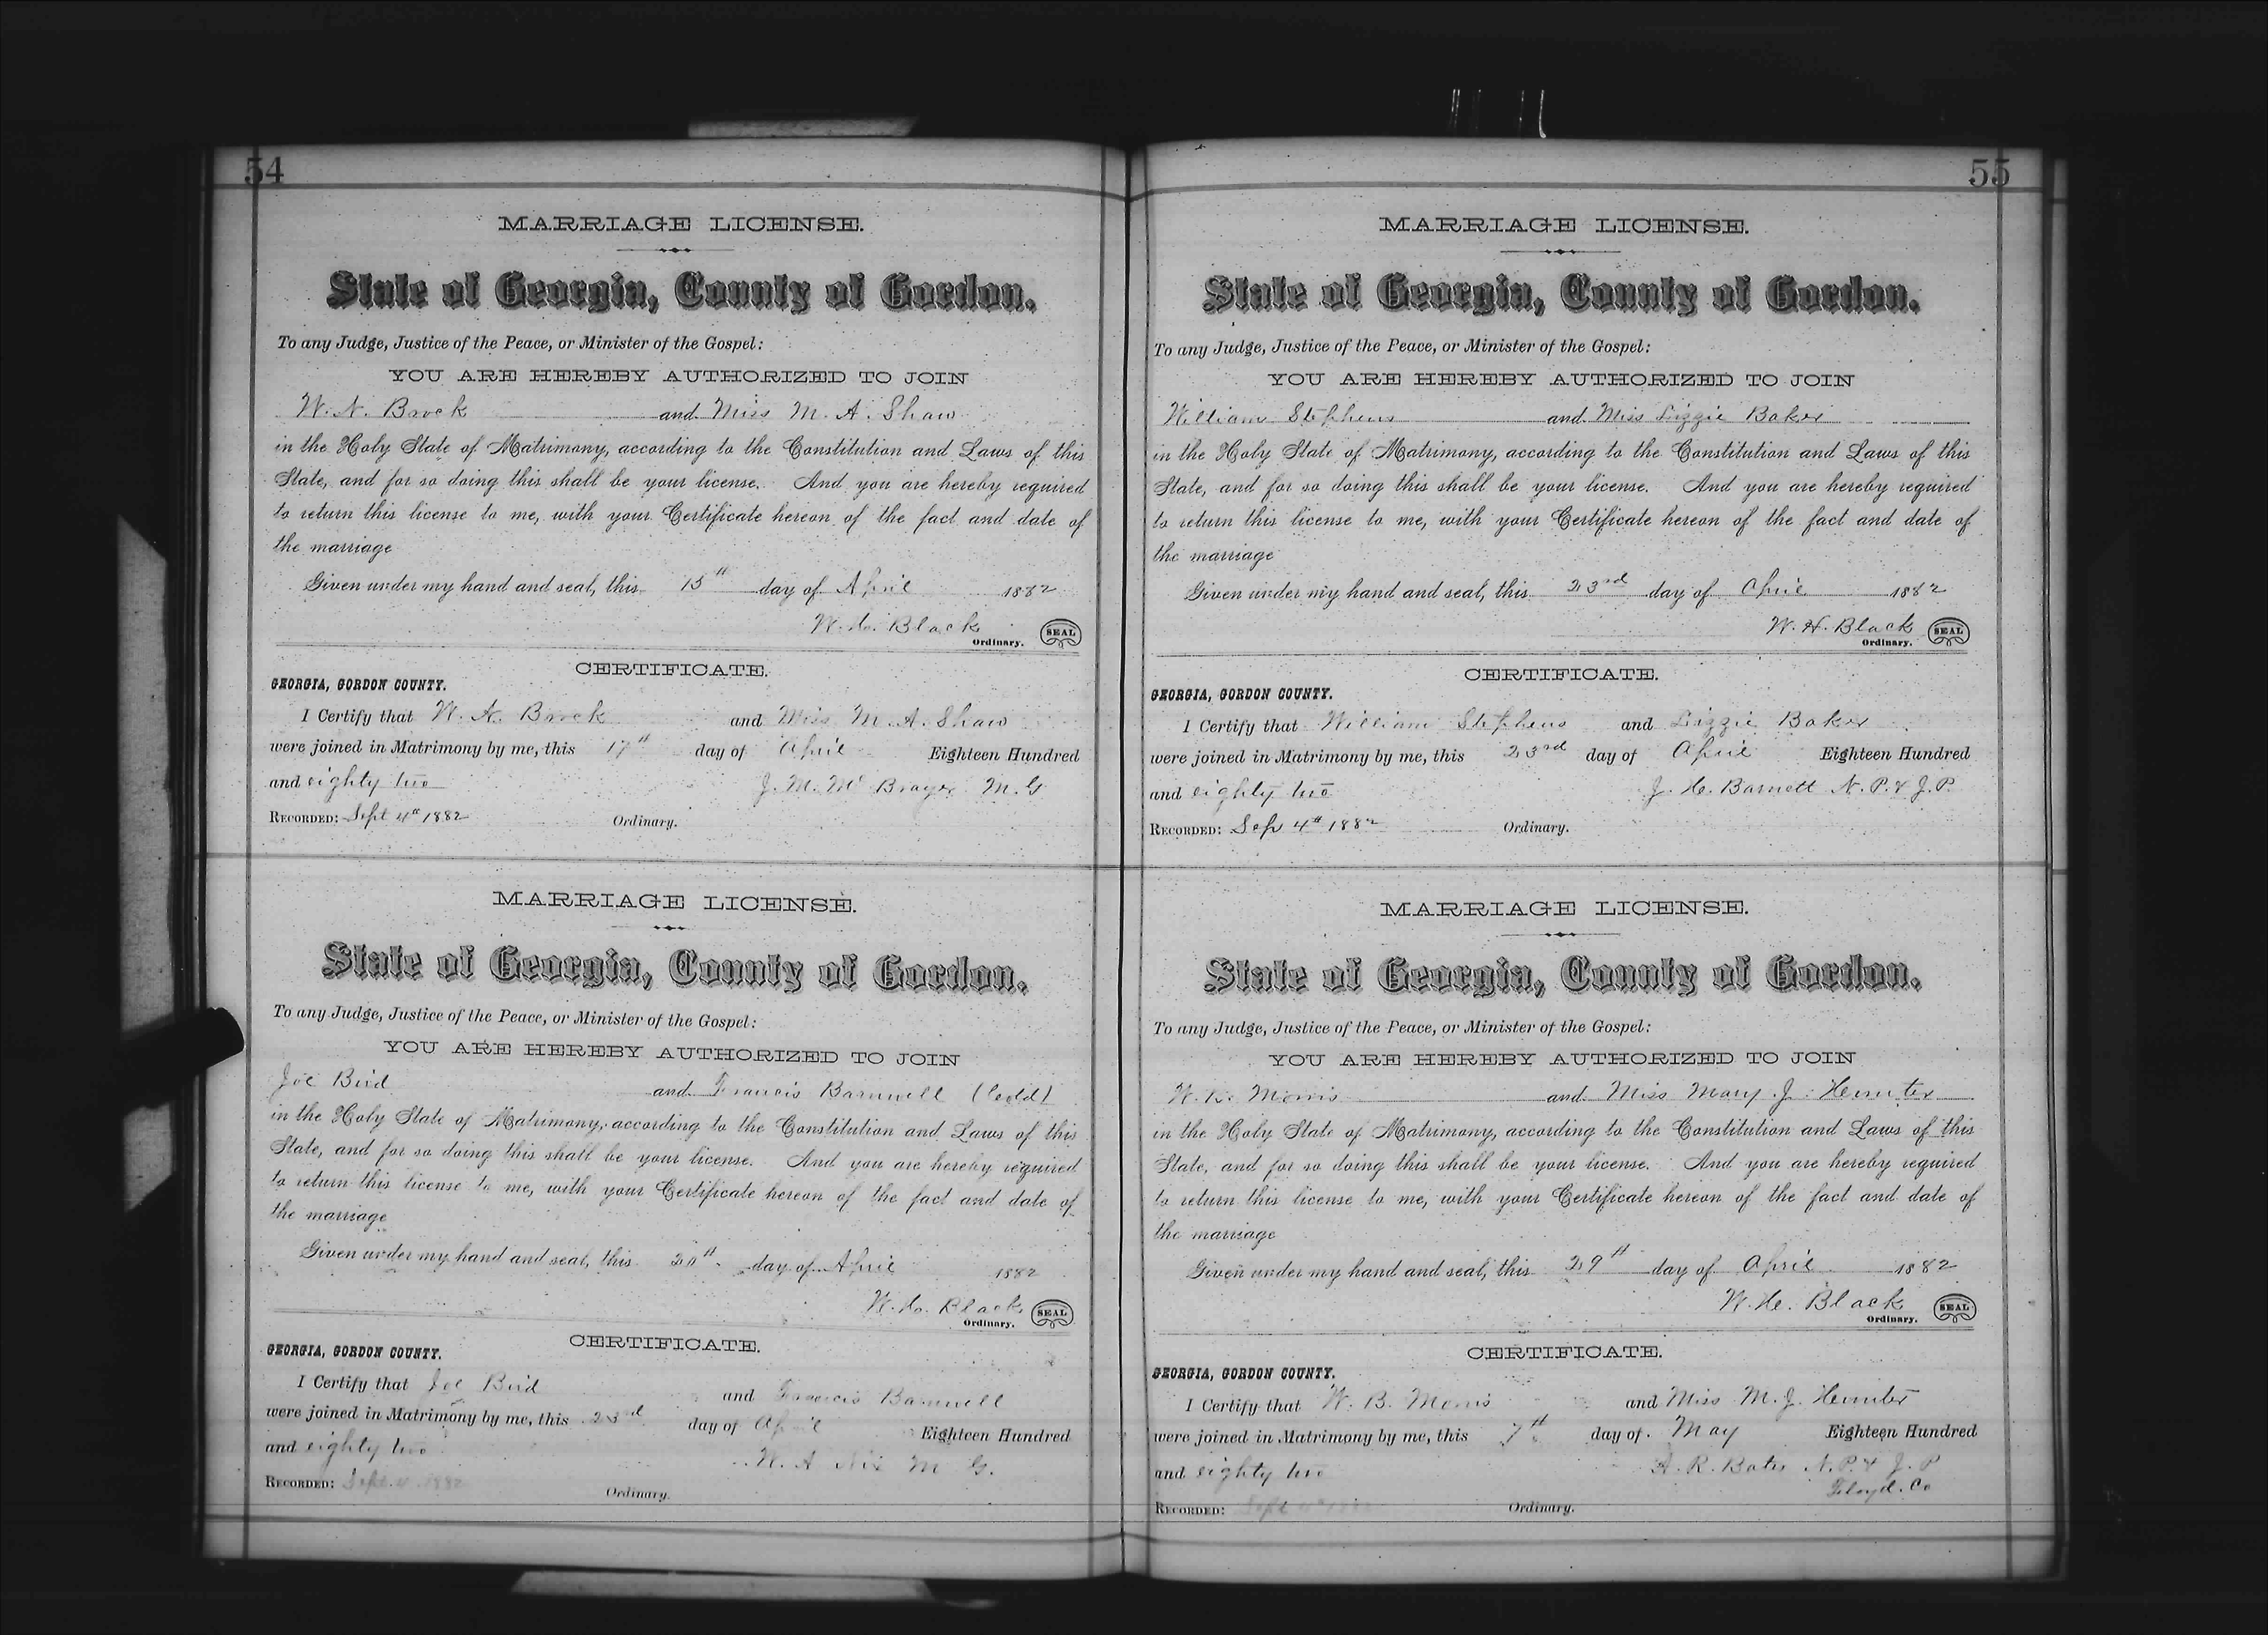 54
MARRIAGE LICENSE.
State of Georgia, County of Gordon.
To any Judge, Justice of the Peace, or Minister of the Gospel:
YOU ARE HEREBY AUTHORIZED TO JOIN
W. N. Brock and Miss M. A. Shaw
in the Holy State of Matrimony, according to the Constitution and Laws of this
State, and for so doing this shall be your license. And you are hereby required
to return this license to me, with your Certificate hereon of the fact and date of
the marriage
Given under my hand and seal, this 15th day of April 1882
W. H. Black
Ordinary. SEAL
CERTIFICATE.
GEORGIA, GORDON COUNTY.
I Certify that W. N. Brock and Miss M. A. Shaw
were joined in Matrimony by me, this 17th day of April Eighteen Hundred
and eighty two J. M. Mc Brayer M. G
RECORDED: Sept 4th 1882 Ordinary.
MARRIAGE LICENSE.
State of Georgia, County of Gordon.
To any Judge, Justice of the Peace, or Minister of the Gospel:
YOU ARE HEREBY AUTHORIZED TO JOIN
Joe Bird and Francis Barnwell (Cold)
in the Holy State of Matrimony, according to the Constitution and Laws of this
State, and for so doing this shall be your license. And you are hereby required
to return this license to me, with your Certificate hereon of the fact and date of
the marriage
Given under my hand and seal, this 20th day of April 1882
W. H. Black
Ordinary. SEAL
CERTIFICATE.
GEORGIA, GORDON COUNTY.
I Certify that Joe Bird and Francis Barnwell
were joined in Matrimony by me, this 23rd day of April Eighteen Hundred
and eighty two W. A Nix M G.
RECORDED: Sept. 4 1882 Ordinary.
55
MARRIAGE LICENSE.
State of Georgia, County of Gordon.
To any Judge, Justice of the Peace, or Minister of the Gospel:
YOU ARE HEREBY AUTHORIZED TO JOIN
William Stephens and Miss Lizzie Baker
in the Holy State of Matrimony, according to the Constitution and Laws of this
State, and for so doing this shall be your license. And you are hereby required
to return this license to me, with your Certificate hereon of the fact and date of
the marriage
Given under my hand and seal, this 23rd day of April 1882
W. H. Black
Ordinary. SEAL
CERTIFICATE.
GEORGIA, GORDON COUNTY.
I Certify that William Stephens and Lizzie Baker
were joined in Matrimony by me, this 23rd day of April Eighteen Hundred
and eighty two J. H. Barnett N. P. & J. P.
RECORDED: Sep 4th 1882 Ordinary.
MARRIAGE LICENSE.
State of Georgia, County of Gordon.
To any Judge, Justice of the Peace, or Minister of the Gospel:
YOU ARE HEREBY AUTHORIZED TO JOIN
W. B. Morris and Miss Mary J. Hunter
in the Holy State of Matrimony, according to the Constitution and Laws of this
State, and for so doing this shall be your license. And you are hereby required
to return this license to me, with your Certificate hereon of the fact and date of
the marriage
Given under my hand and seal, this 29th day of April 1882
W. H. Black
Ordinary. SEAL
CERTIFICATE.
GEORGIA, GORDON COUNTY.
I Certify that W. B. Morris and Miss M. J. Hunter
were joined in Matrimony by me, this 7th day of May Eighteen Hundred
and eighty two A. R. Bates N. P. & J. P
Floyd. Co
RECORDED: Sept 4th 1882 Ordinary.